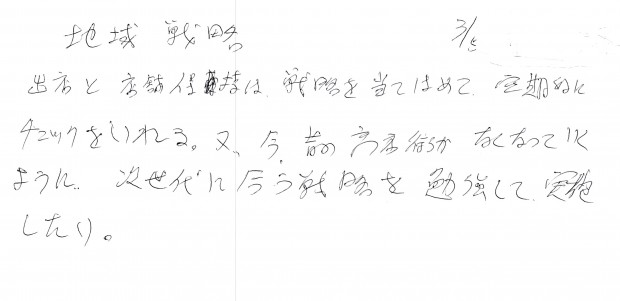 地域戦略 3/5
出店と店舗維持は、戦略を当てはめて、定期的に
チェックをいれる。又、今、昔の商店街がなくなっていく
ように、次世代に合う戦略を勉強して、実施
したい。